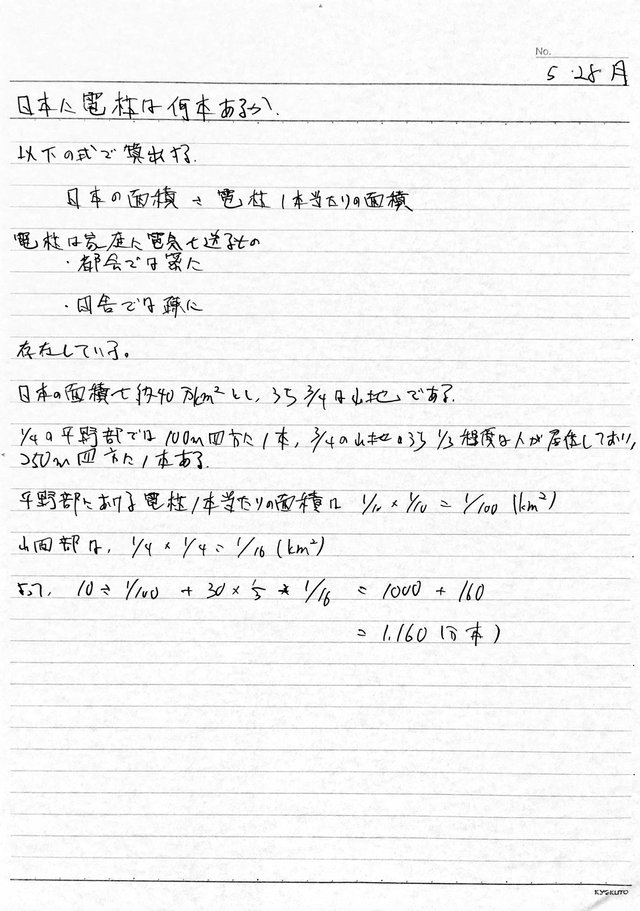 No.
5.28 月
日本に電柱は何本あるか.
以下の式で算出する.
日本の面積 ÷ 電柱1本当たりの面積
電柱は家庭に電気を送るもの
・都会では密に
・田舎では疎に
存在している。
日本の面積を約40万km²とし、うち3/4は山地である.
1/4の平野部では100m四方に1本, 3/4の山地のうち1/3程度は人が居住しており,
250m四方に1本ある.
平野部における電柱1本当たりの面積は 1/10 × 1/10 = 1/100 (km²)
山間部は, 1/4 × 1/4 = 1/16 (km²)
よって, 10 ÷ 1/100 + 30 × 1/3 ÷ 1/16 = 1000 + 160
= 1.160 (万本)
KYOKUTO